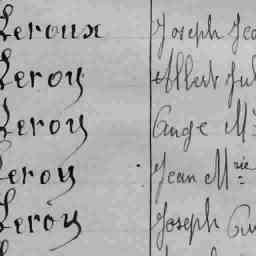 Leroux Joseph Jea
Leroy Albert Jul
Leroy Ange M
Leroy Jean Mrie
Leroy Joseph